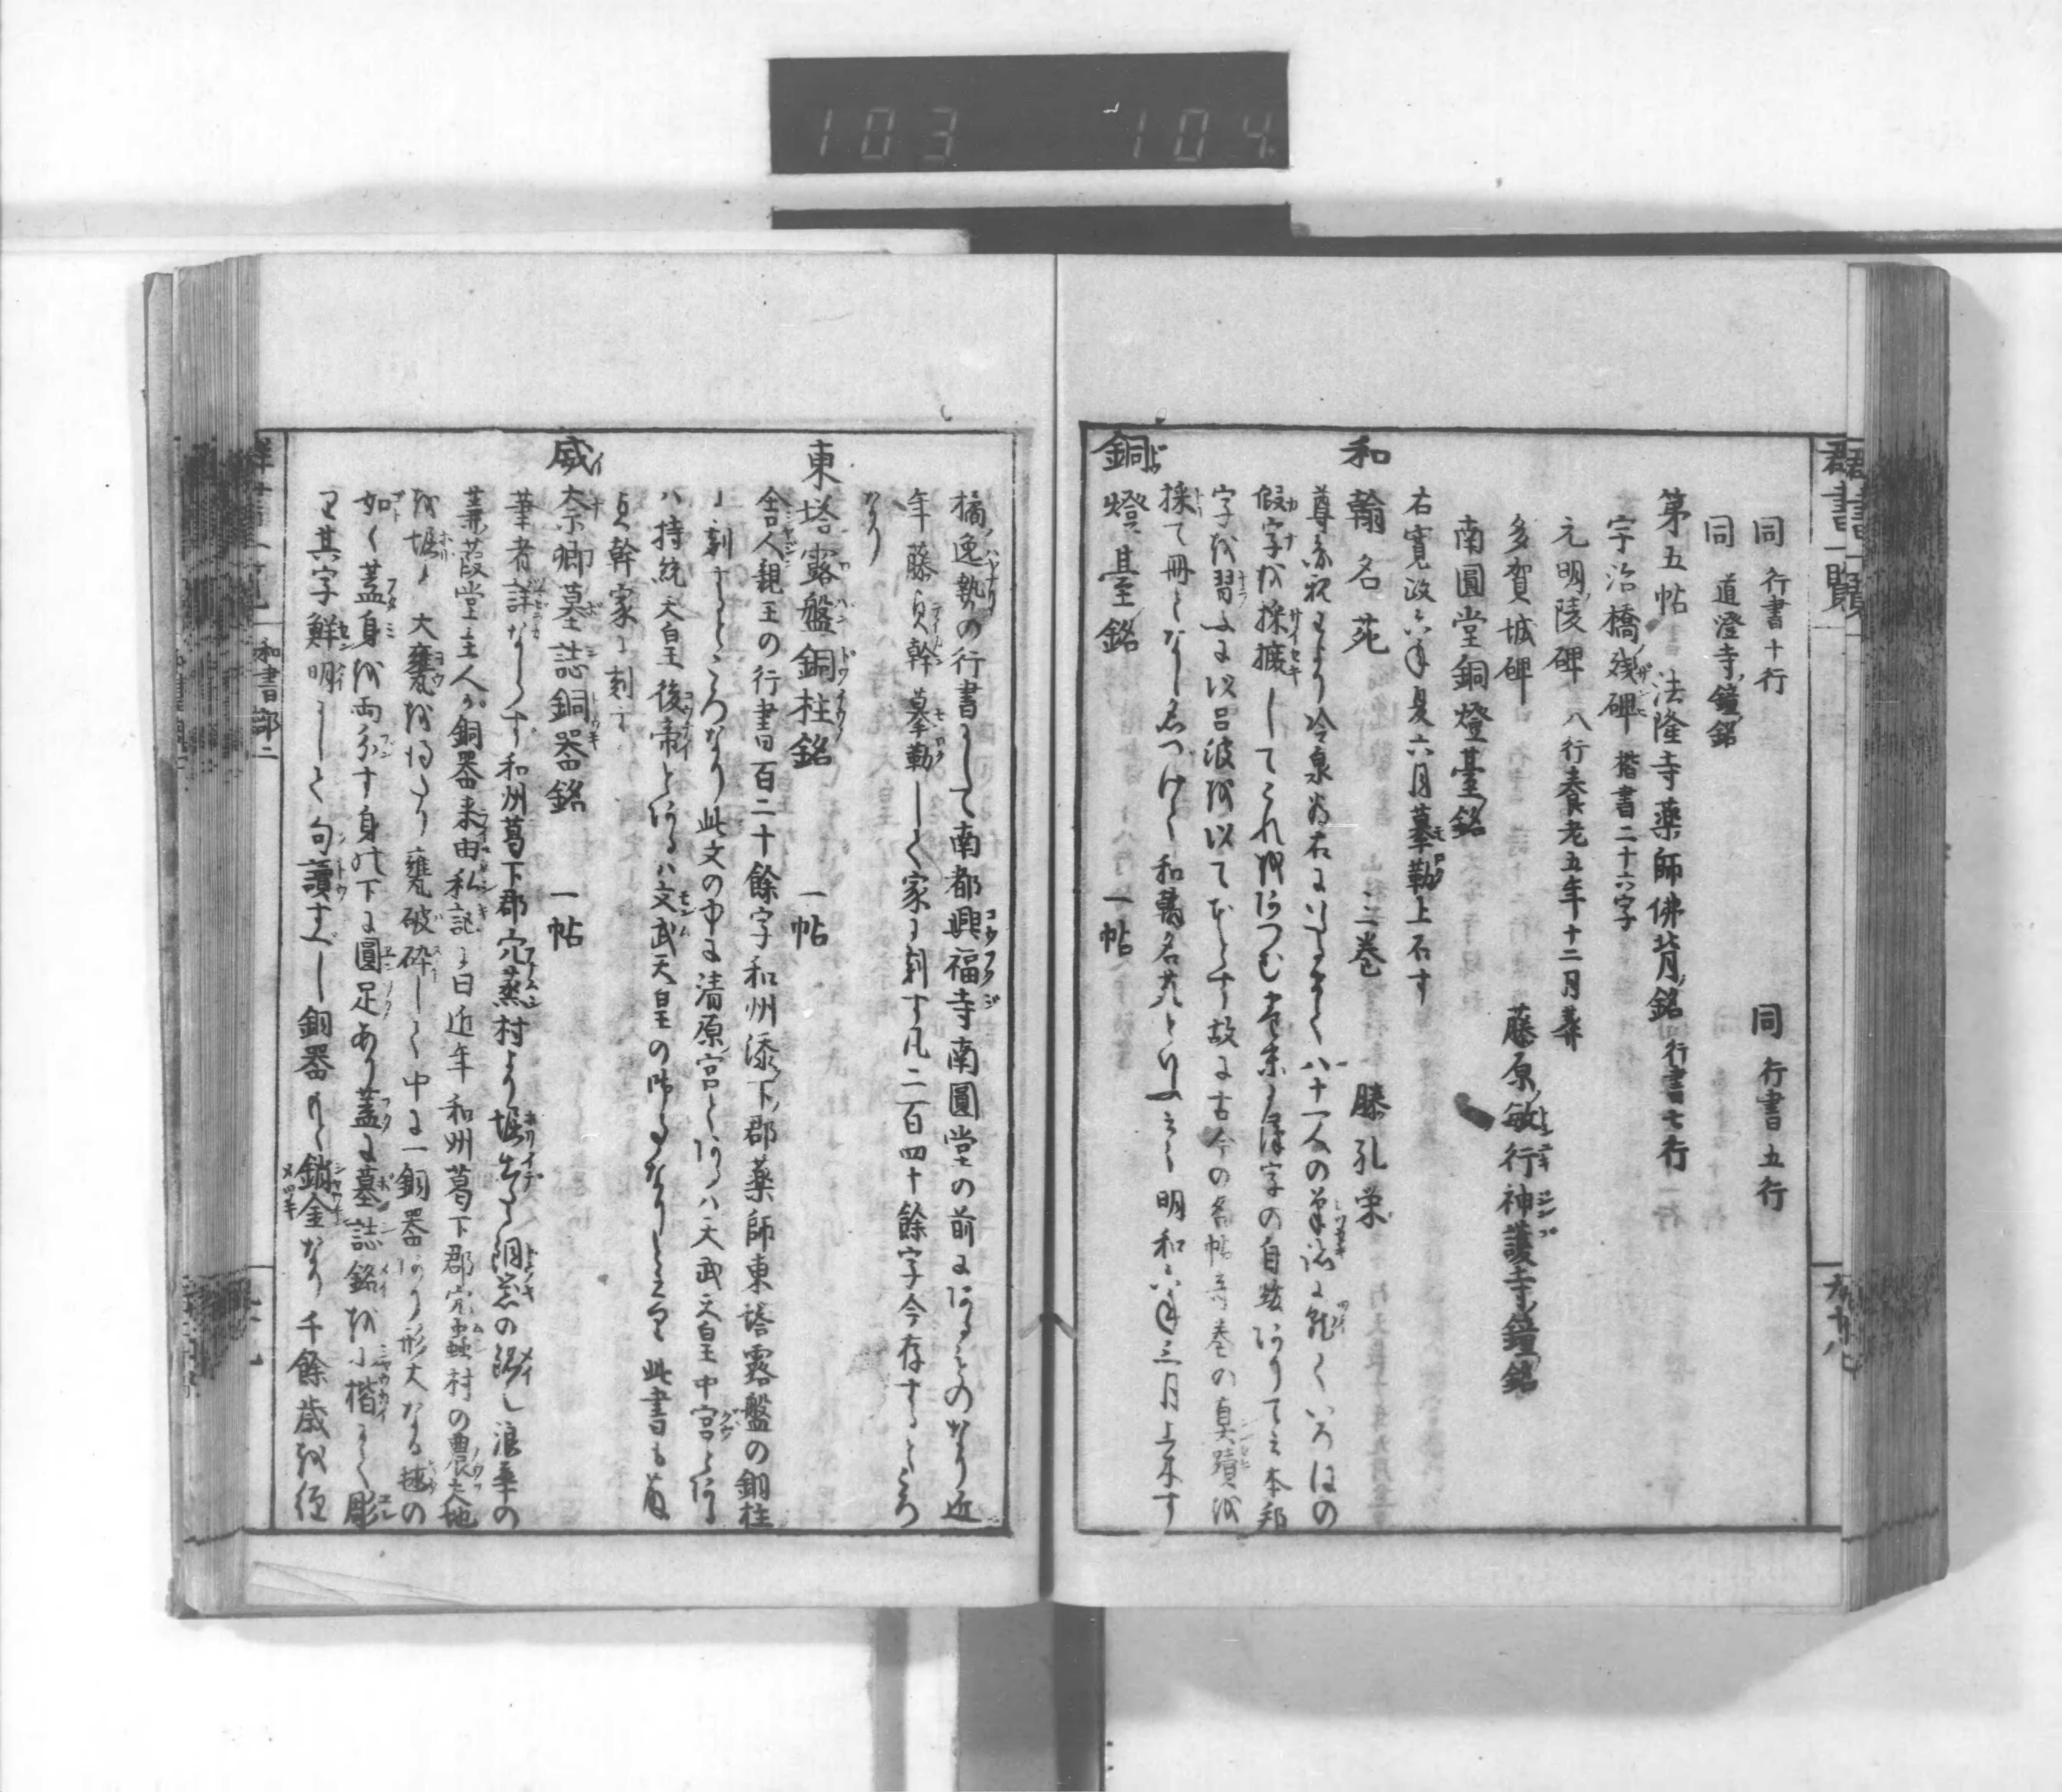 103 104
群書一覧
同 行書十行 同 行書五行
同 道澄寺鐘銘
第五帖 法隆寺薬師佛背銘 行書七行
宇治橋残碑 楷書二十六字
元明陵碑 八行養老五年十二月葬
多賀城碑 藤原敏行神護寺鐘銘
南圓堂銅燈臺銘
右寛政六年夏六月摹勒上石す
和翰名苑 三巻 滕孔榮
尊 より冷泉為右にいたるまて八十一人の に就ていろはの
假字を採摭してこれをあつむ 字の自 ありてこそ本邦
字を習ふに以呂波を以て とす故に古今の名帖 巻の真蹟を
採て冊となし つけて和翰名苑といふと云 明和六年三月上木す
銅燈臺銘 一帖
九十八
橘逸勢の行書にして南都興福寺南圓堂の前にあるものなり近
年藤貞幹摹勒して家に刻す凡二百四十餘字今存するところ
なり
東塔露盤銅柱銘 一帖
舎人親王の行書百二十餘字和州添下郡薬師東塔露盤の銅柱
に刻するところなり此文の中に清原宮とあるハ天武天皇中宮とある
ハ持統天皇後帝とあるハ文武天皇の御事なりと云 此書も藤
貞幹家に刻す
威奈卿墓誌銅器銘 一帖
筆者詳ならす和州葛下郡穴蒸村より堀出たる銅器の銘也浪華の
蒹葭堂主人の銅器来由私記に曰近年和州葛下郡穴蟲村の農夫地
を堀て大甕を得たり甕破砕して中に一銅器あり形大なる毬の
如く蓋身を両分す身の下に圓足あり蓋に墓誌銘を小楷にて彫
る其字鮮明にして句讀すべし銅器もと鍍金なり千餘歳を経
和書部二